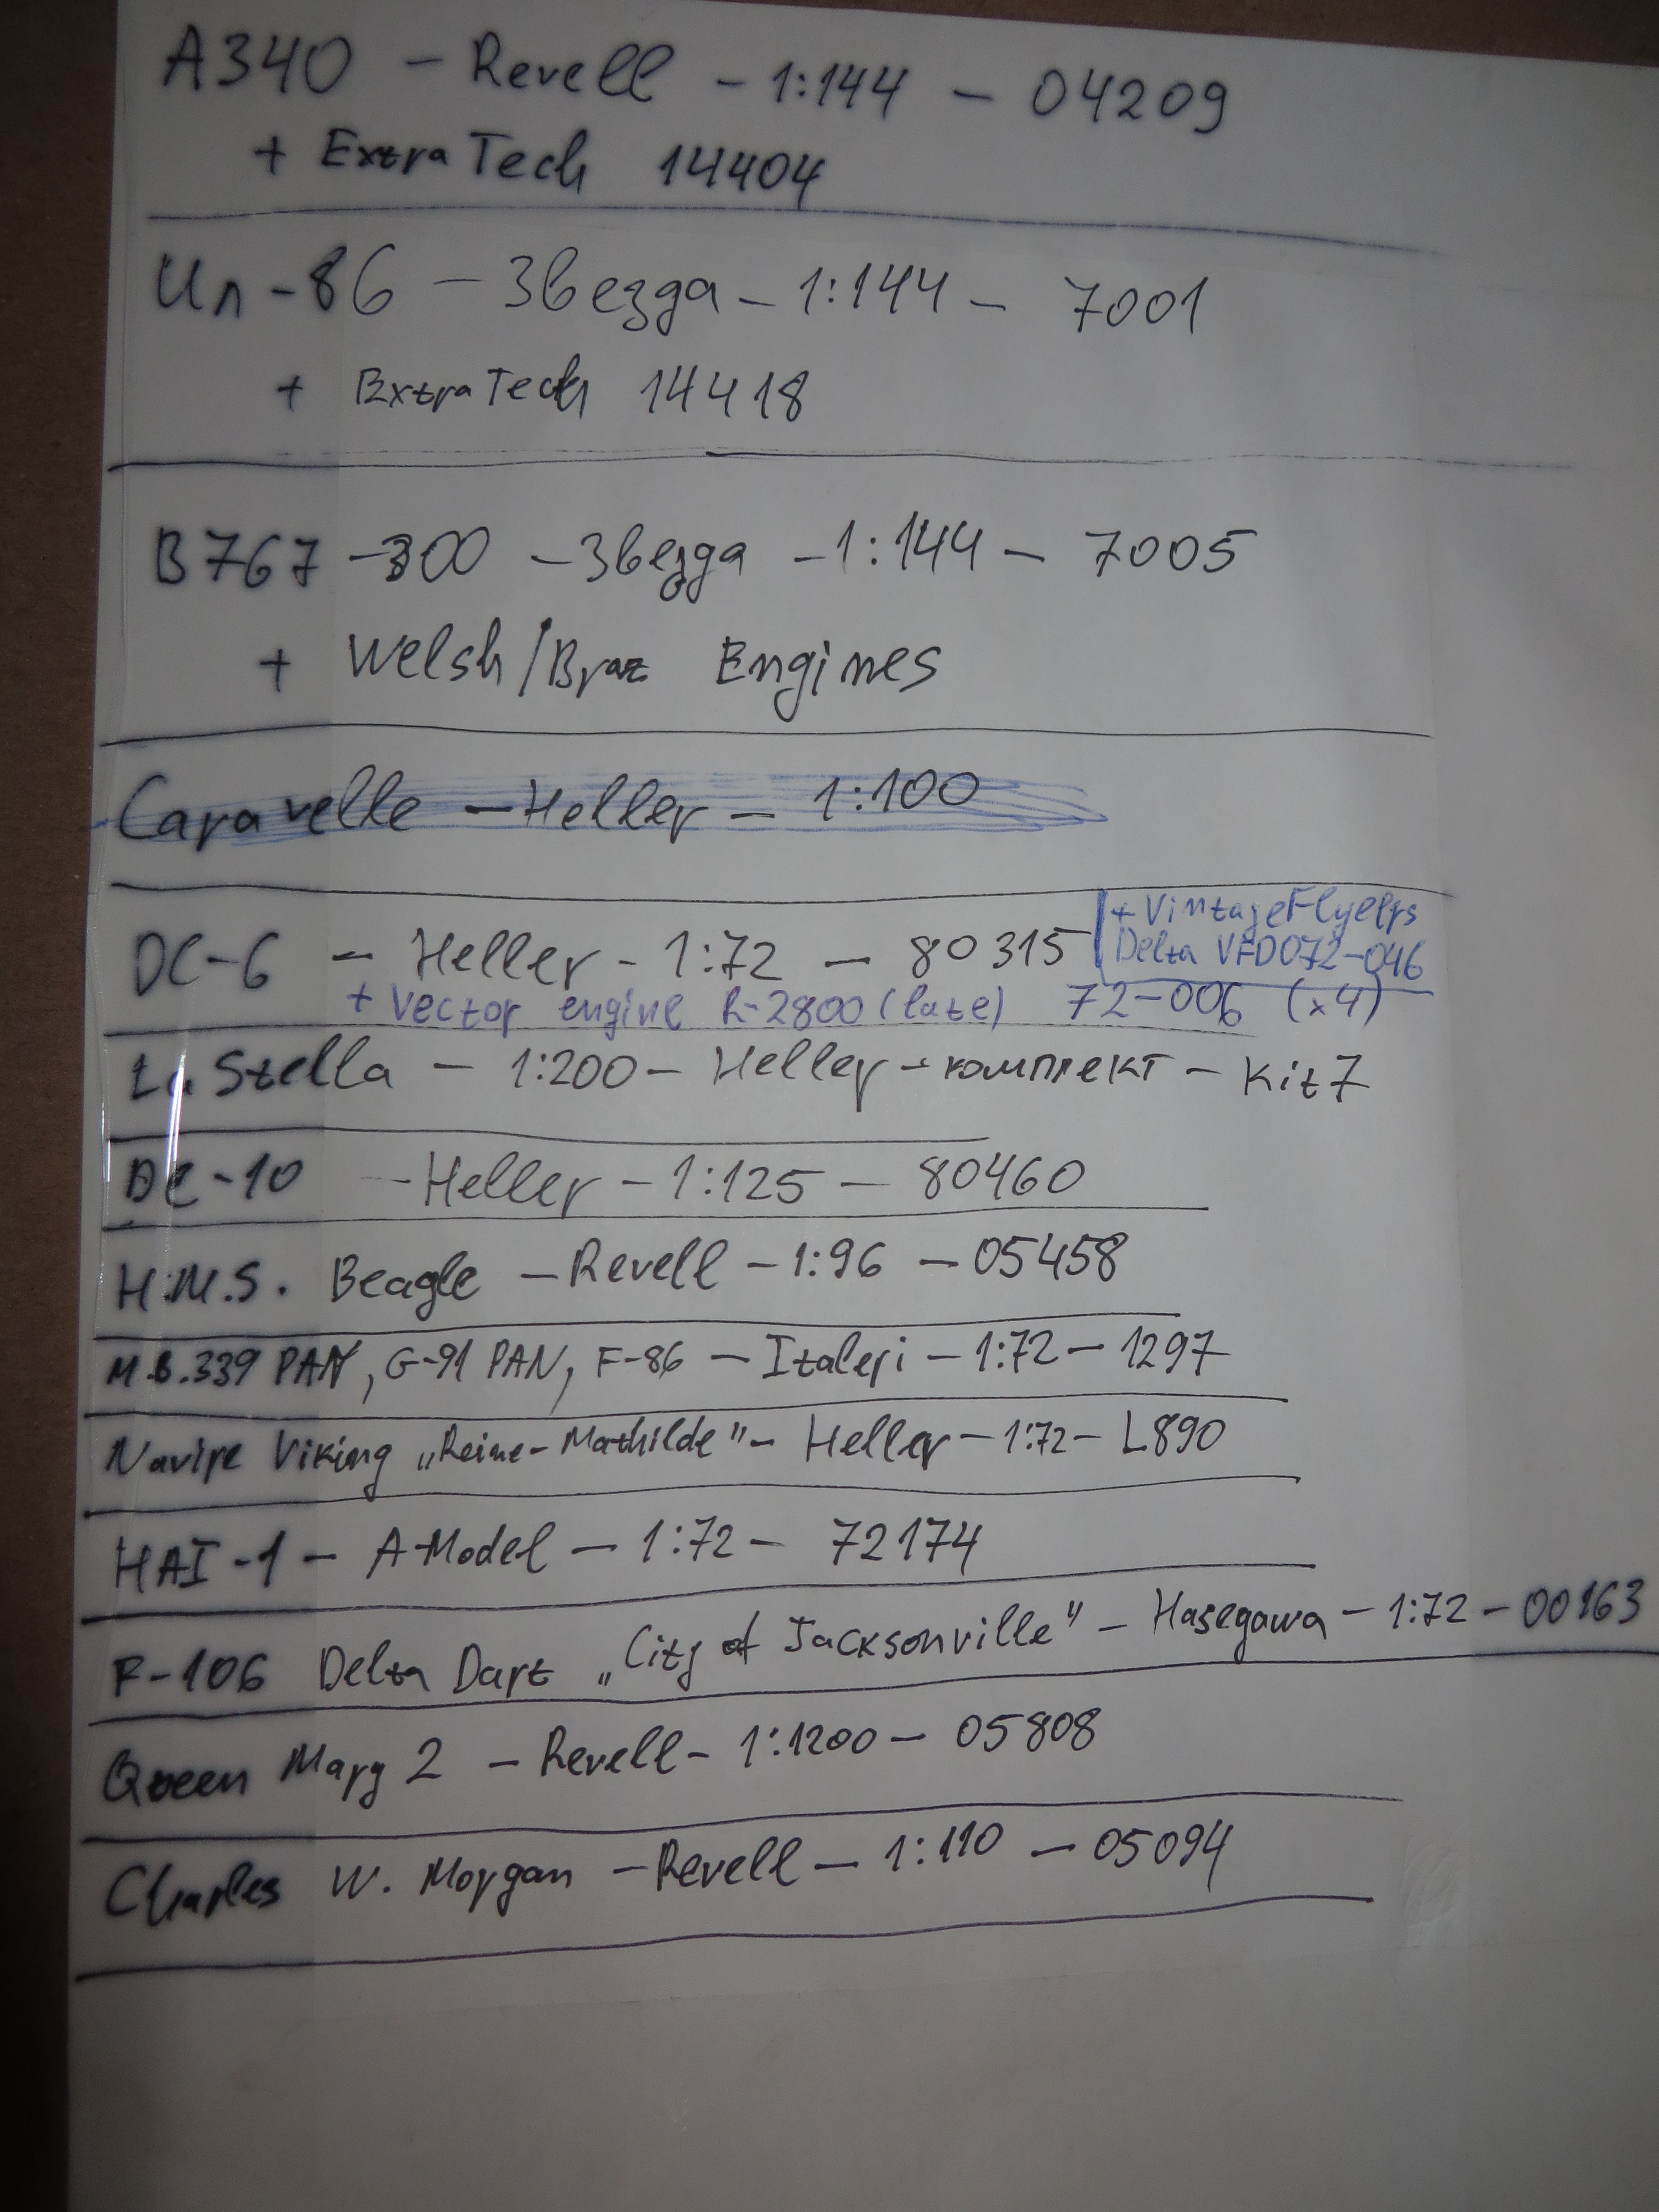 A340 – Revell – 1:144 – 04209
+ ExtraTech 14404
Ил-86 – Звезда – 1:144 – 7001
+ ExtraTech 14418
B767-300 – Звезда – 1:144 – 7005
+ Welsh/Braz Engines
Caravelle – Heller – 1:100
DC-6 – Heller – 1:72 – 80315
+ VintageFlyelrs
Delta VFD072-046
+ Vector engine R-2800 (late) 72-006 (x4)
La Stella – 1:200 – Heller – комплект – Kit7
DC-10 – Heller – 1:125 – 80460
H.M.S. Beagle – Revell – 1:96 – 05458
M.B.339 PAN, G-91 PAN, F-86 – Italeri – 1:72 – 1297
Navire Viking „Reine-Mathilde" – Heller – 1:72 – L890
HAI-1 – A-Model – 1:72 – 72174
F-106 Delta Dart „City of Jacksonville" – Hasegawa – 1:72 – 00163
Queen Mary 2 – Revell – 1:1200 – 05808
Charles W. Morgan – Revell – 1:110 – 05094